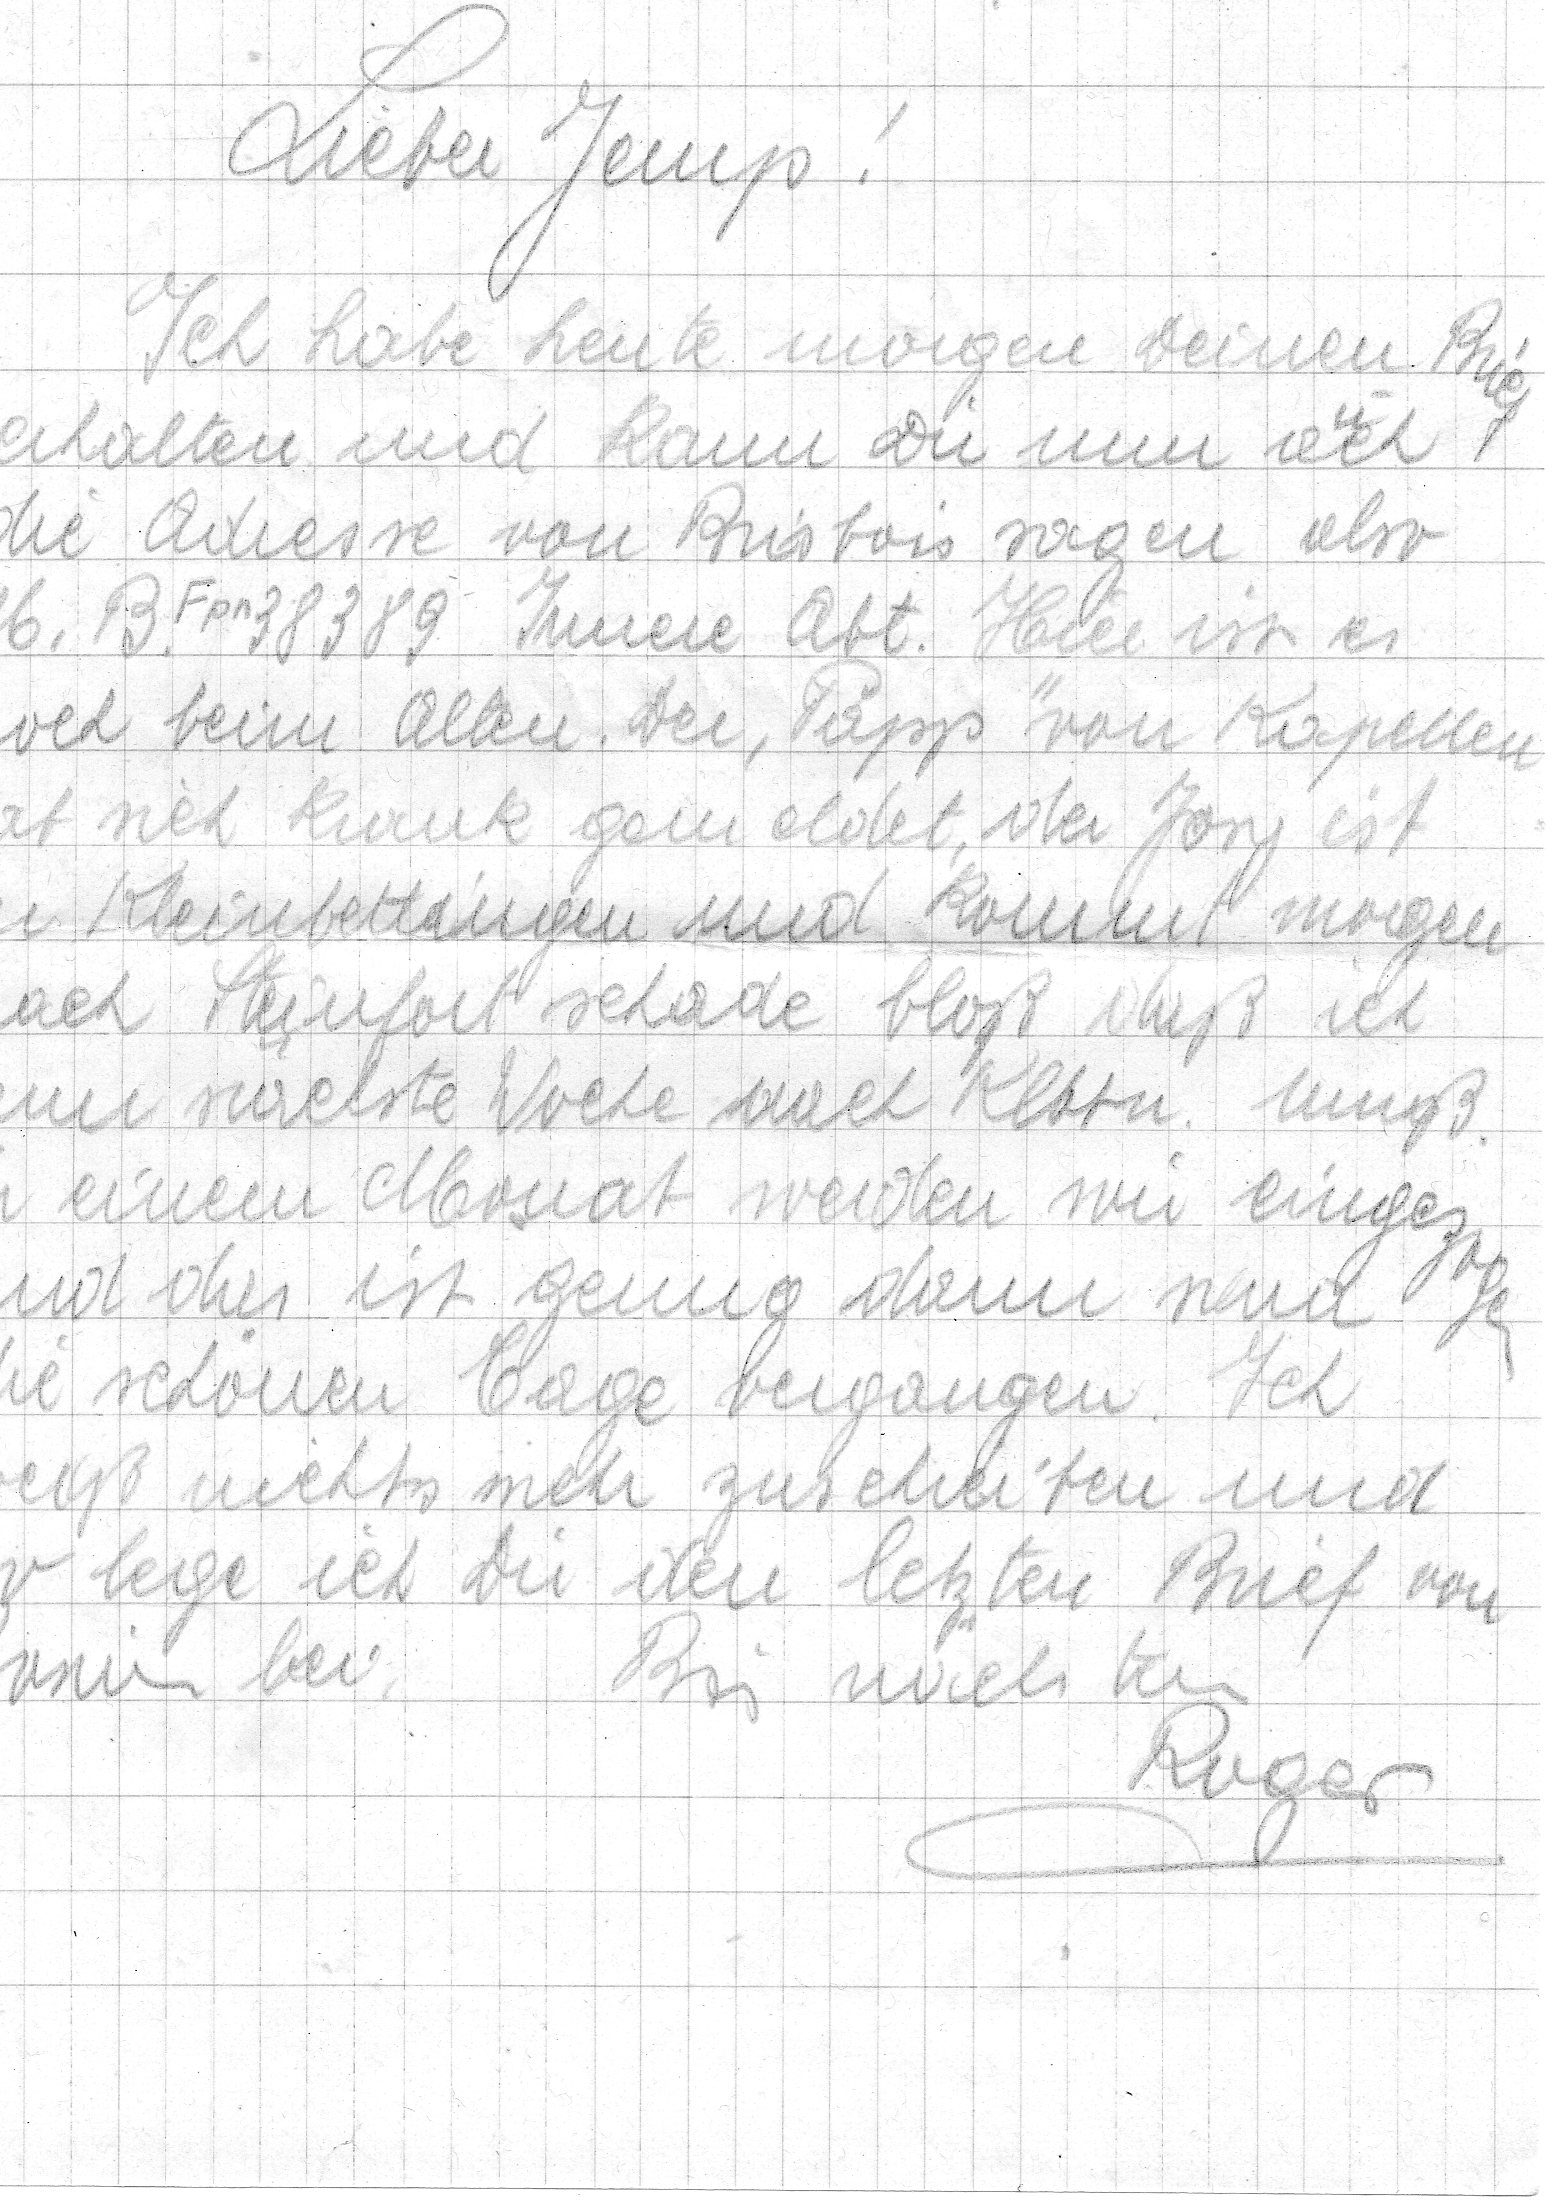 Lieber Jemp!
Ich habe heute morgen Deinen Brief
erhalten und kann Dir nun auch
die Adresse von Brisbois sagen also
B. Fpn 38389 Innere Abt. Hier ist es
noch beim Alten. Der „Päpp" von Kapellen
at sich krank gemeldet, der Josy ist
Kleinbettingen und kommt morgen
ach Steinfort schade bloß daß ich
nächste Woche nach muß.
einem Monat werden wir eingezogen
und das ist genug dann sind
die schönen Tage vergangen. Ich
eiß nichts mehr zuschreiben und
so lege ich Dir den letzten Brief von
bei. Bis nächstens
Roger